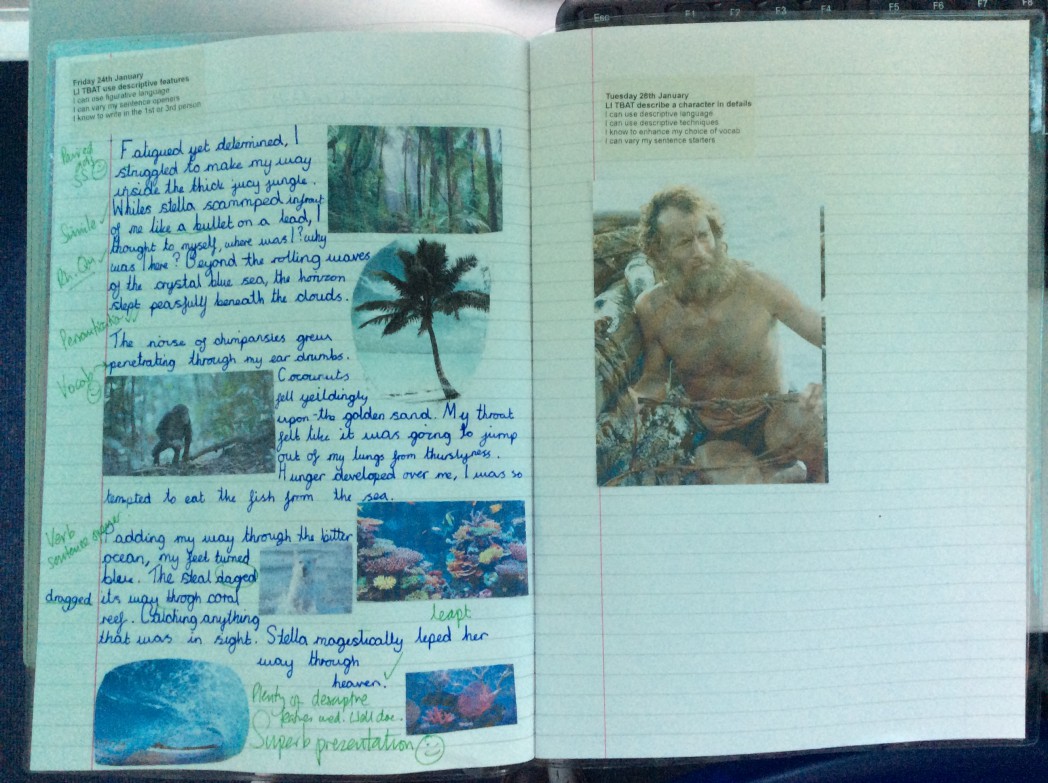 Esc F1 F2 F3 F4 F5 F6 F7 F8
Friday 24th January
LI TBAT use descriptive features
I can use figurative language
I can vary my sentence openers
I know to write in the 1st or 3rd person
Paired
adj
SS
Simile
Rh. Qu
Vocab
Verb
sentence opener
dragged
Fatigued yet determined, I
struggled to make my way
inside the thick jucy jungle.
Whiles stella scammped infront
of me like a bullet on a lead, I
thought to myself, where was I? why
was I here? Beyond the rolling waves
of the crystal blue sea, the horizon
slept peasfully beneath the clouds.
The noise of chimpansies grew
penetrating through my ear drumbs.
Cocounuts
fell yeildingly
upon the golden sand. My throat
felt like it was going to jump
out of my lungs from thurstyness.
Hunger developed over me, I was so
tempted to eat the fish from the sea.
Padding my way through the bitter
ocean, my feet turned
bleu. The steal daged
its way throgh coral
reef. Clutching anything
that was in sight. Stella magestically leped her
leapt
way through
heaven.
Plenty of descriptive
used. Well done.
Superb presentation
Tuesday 28th January
LI TBAT describe a character in details
I can use descriptive language
I can use descriptive techniques
I know to enhance my choice of vocab
I can vary my sentence starters